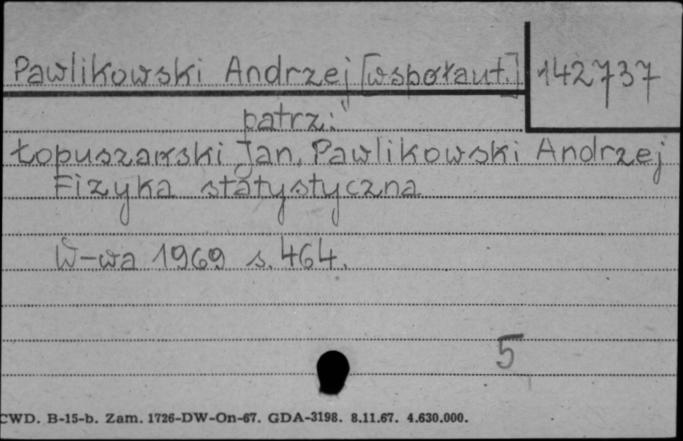 Pawlikowski Andrzej [współaut.] 142737
patrz:
Łopuszański Jan, Pawlikowski Andrzej
Fizyka statystyczna
W-wa 1969 s. 464.
5
CWD. B-15-b. Zam. 1726-DW-On-67. GDA-3198. 8.11.67. 4.630.000.